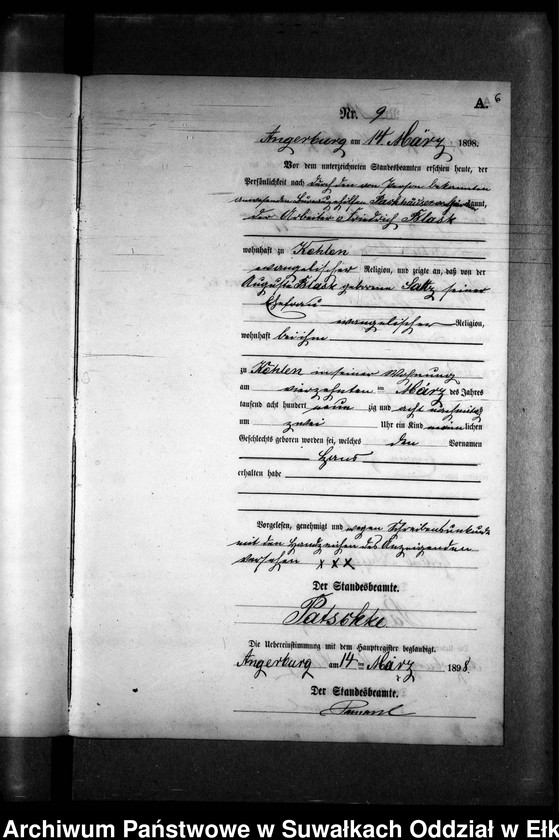 A. 6
Nr. 9
Angerburg am 14 März 1898.
Vor dem unterzeichneten Standesbeamten erschien heute, der
Persönlichkeit nach durch den von Person bekannten
kannt,
der Arbeiter Friedrich Klask
wohnhaft zu Kehlen
evangelischer Religion, und zeigte an, daß von der
Auguste Klask geborene Salz seiner
Ehefrau
evangelischer Religion,
wohnhaft bei ihm
zu Kehlen in seiner Wohnung
am vierzehnten ten März des Jahres
tausend acht hundert neun zig und acht vormittags
um zwei Uhr ein Kind männlichen
Geschlechts geboren worden sei, welches den Vornamen
Hans
erhalten habe
Vorgelesen, genehmigt und wegen Schreibensunkunde
mit den Handzeichen des Anzeigenden
versehen x x x
Der Standesbeamte.
Patschke
Die Uebereinstimmung mit dem Hauptregister beglaubigt.
Angerburg am 14 ten März 1898.
Der Standesbeamte.
Archiwum Państwowe w Suwałkach Oddział w Ełk